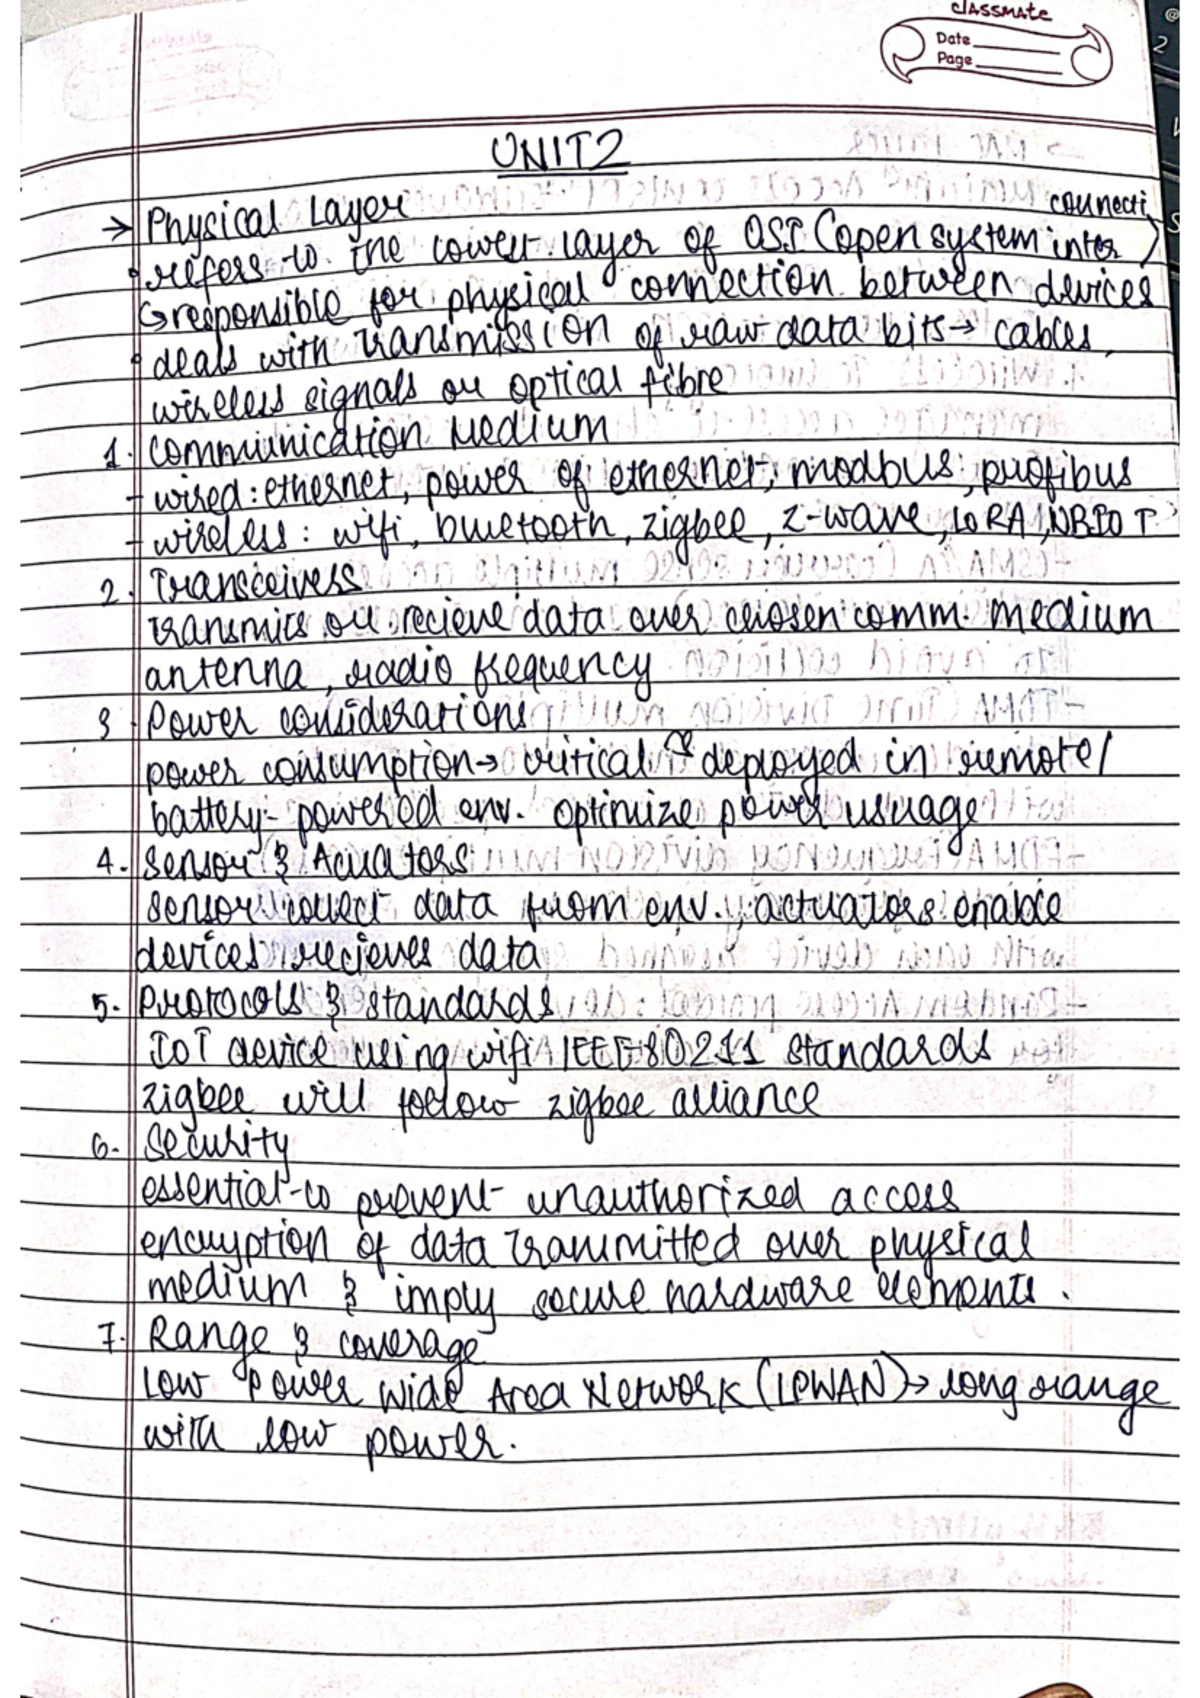 classmate
Date
Page
UNIT 2
→ Physical Layer
connecti
• refers to the lowest layer of OSI (open system inter )
↳ responsible for physical connection between devices
• deals with transmission of raw data bits → cables,
wireless signals or optical fibre
1. communication Medium
- wired : ethernet, power of ethernet, modbus, profibus
- wireless : wifi, bluetooth, zigbee, z-wave, LoRA, NBIOT
2. Transceivers
transmits or recieve data over chosen comm. medium
antenna, radio frequency
3. Power considerations
power consumption → critical deployed in remote/
battery-powered env. optimize power usuage
4. Sensor & Acuators
sensor collect data from env., actuators enable
devices recieves data
5. Protocols & standards
IoT device using wifi IEEE 80211 standards
zigbee will follow zigbee alliance
6. Security
essential to prevent unauthorized access
encryption of data transmitted over physical
medium & imply secure hardware elements.
7. Range & coverage
Low Power Wide Area Network (LPWAN) → long range
with low power.